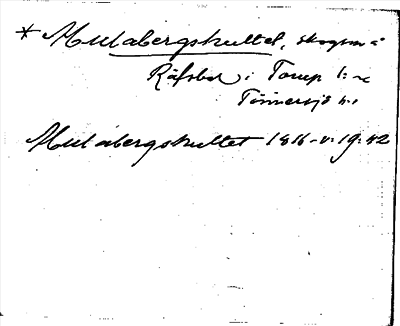 * Mulabergskultet, skogsm å
Räfsbol i Torup 1:~
Tönnersjö h:
Mulabergskultet 1816 v: 19:42